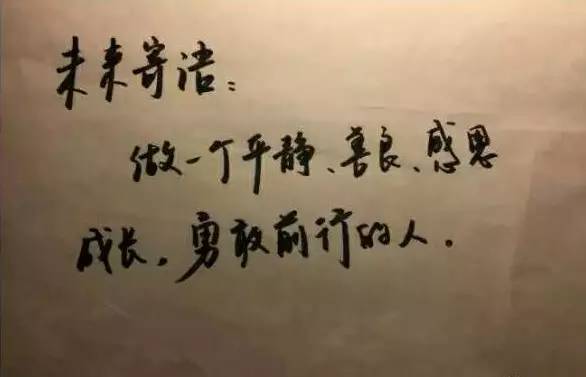 未来寄语：
做一个平静、善良、感恩
成长，勇敢前行的人．